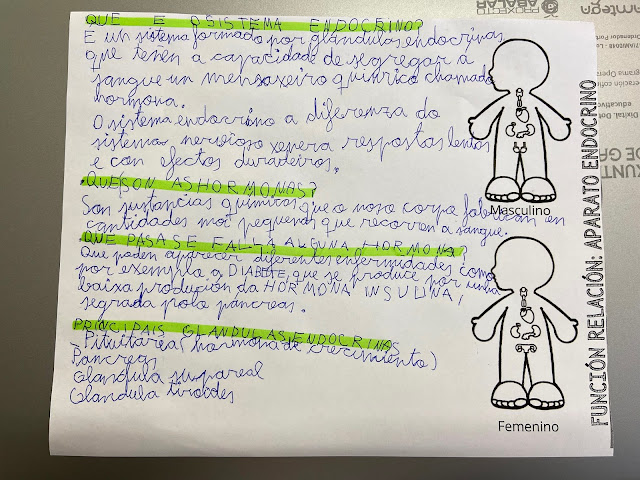 QUE E O SISTEMA ENDOCRINO?
E un sistema formado por glándulas endocrinas
que teñen a capacidade de segregar a
sangue un mensaxeiro químico chamado
hormona.
O sistema endocrino a diferenza do
sistema nervioso xenera respostas lentas
e con efectos duradeiros.
.QUE SON AS HORMONAS?
Son sustancias químicas que o noso corpo fabrica en
cantidades moi pequenas que recorren a sangue.
.QUE PASA SE FALLA ALGUNA HORMONA?
Que poden aparecer diferentes enfermidades como
por exemplo a DIABETE, que se produce por unha
baixa produción da HORMONA INSULINA,
segrada polo páncreas.
PRINCIPAIS GLANDULAS ENDOCRINAS
-Pituitarea (hormona de crecimiento)
Páncreas
Glandula suprareal
Glandula tiroides
Masculino
Femenino
FUNCIÓN RELACIÓN: APARATO ENDOCRINO
PROXECTO
ABALAR